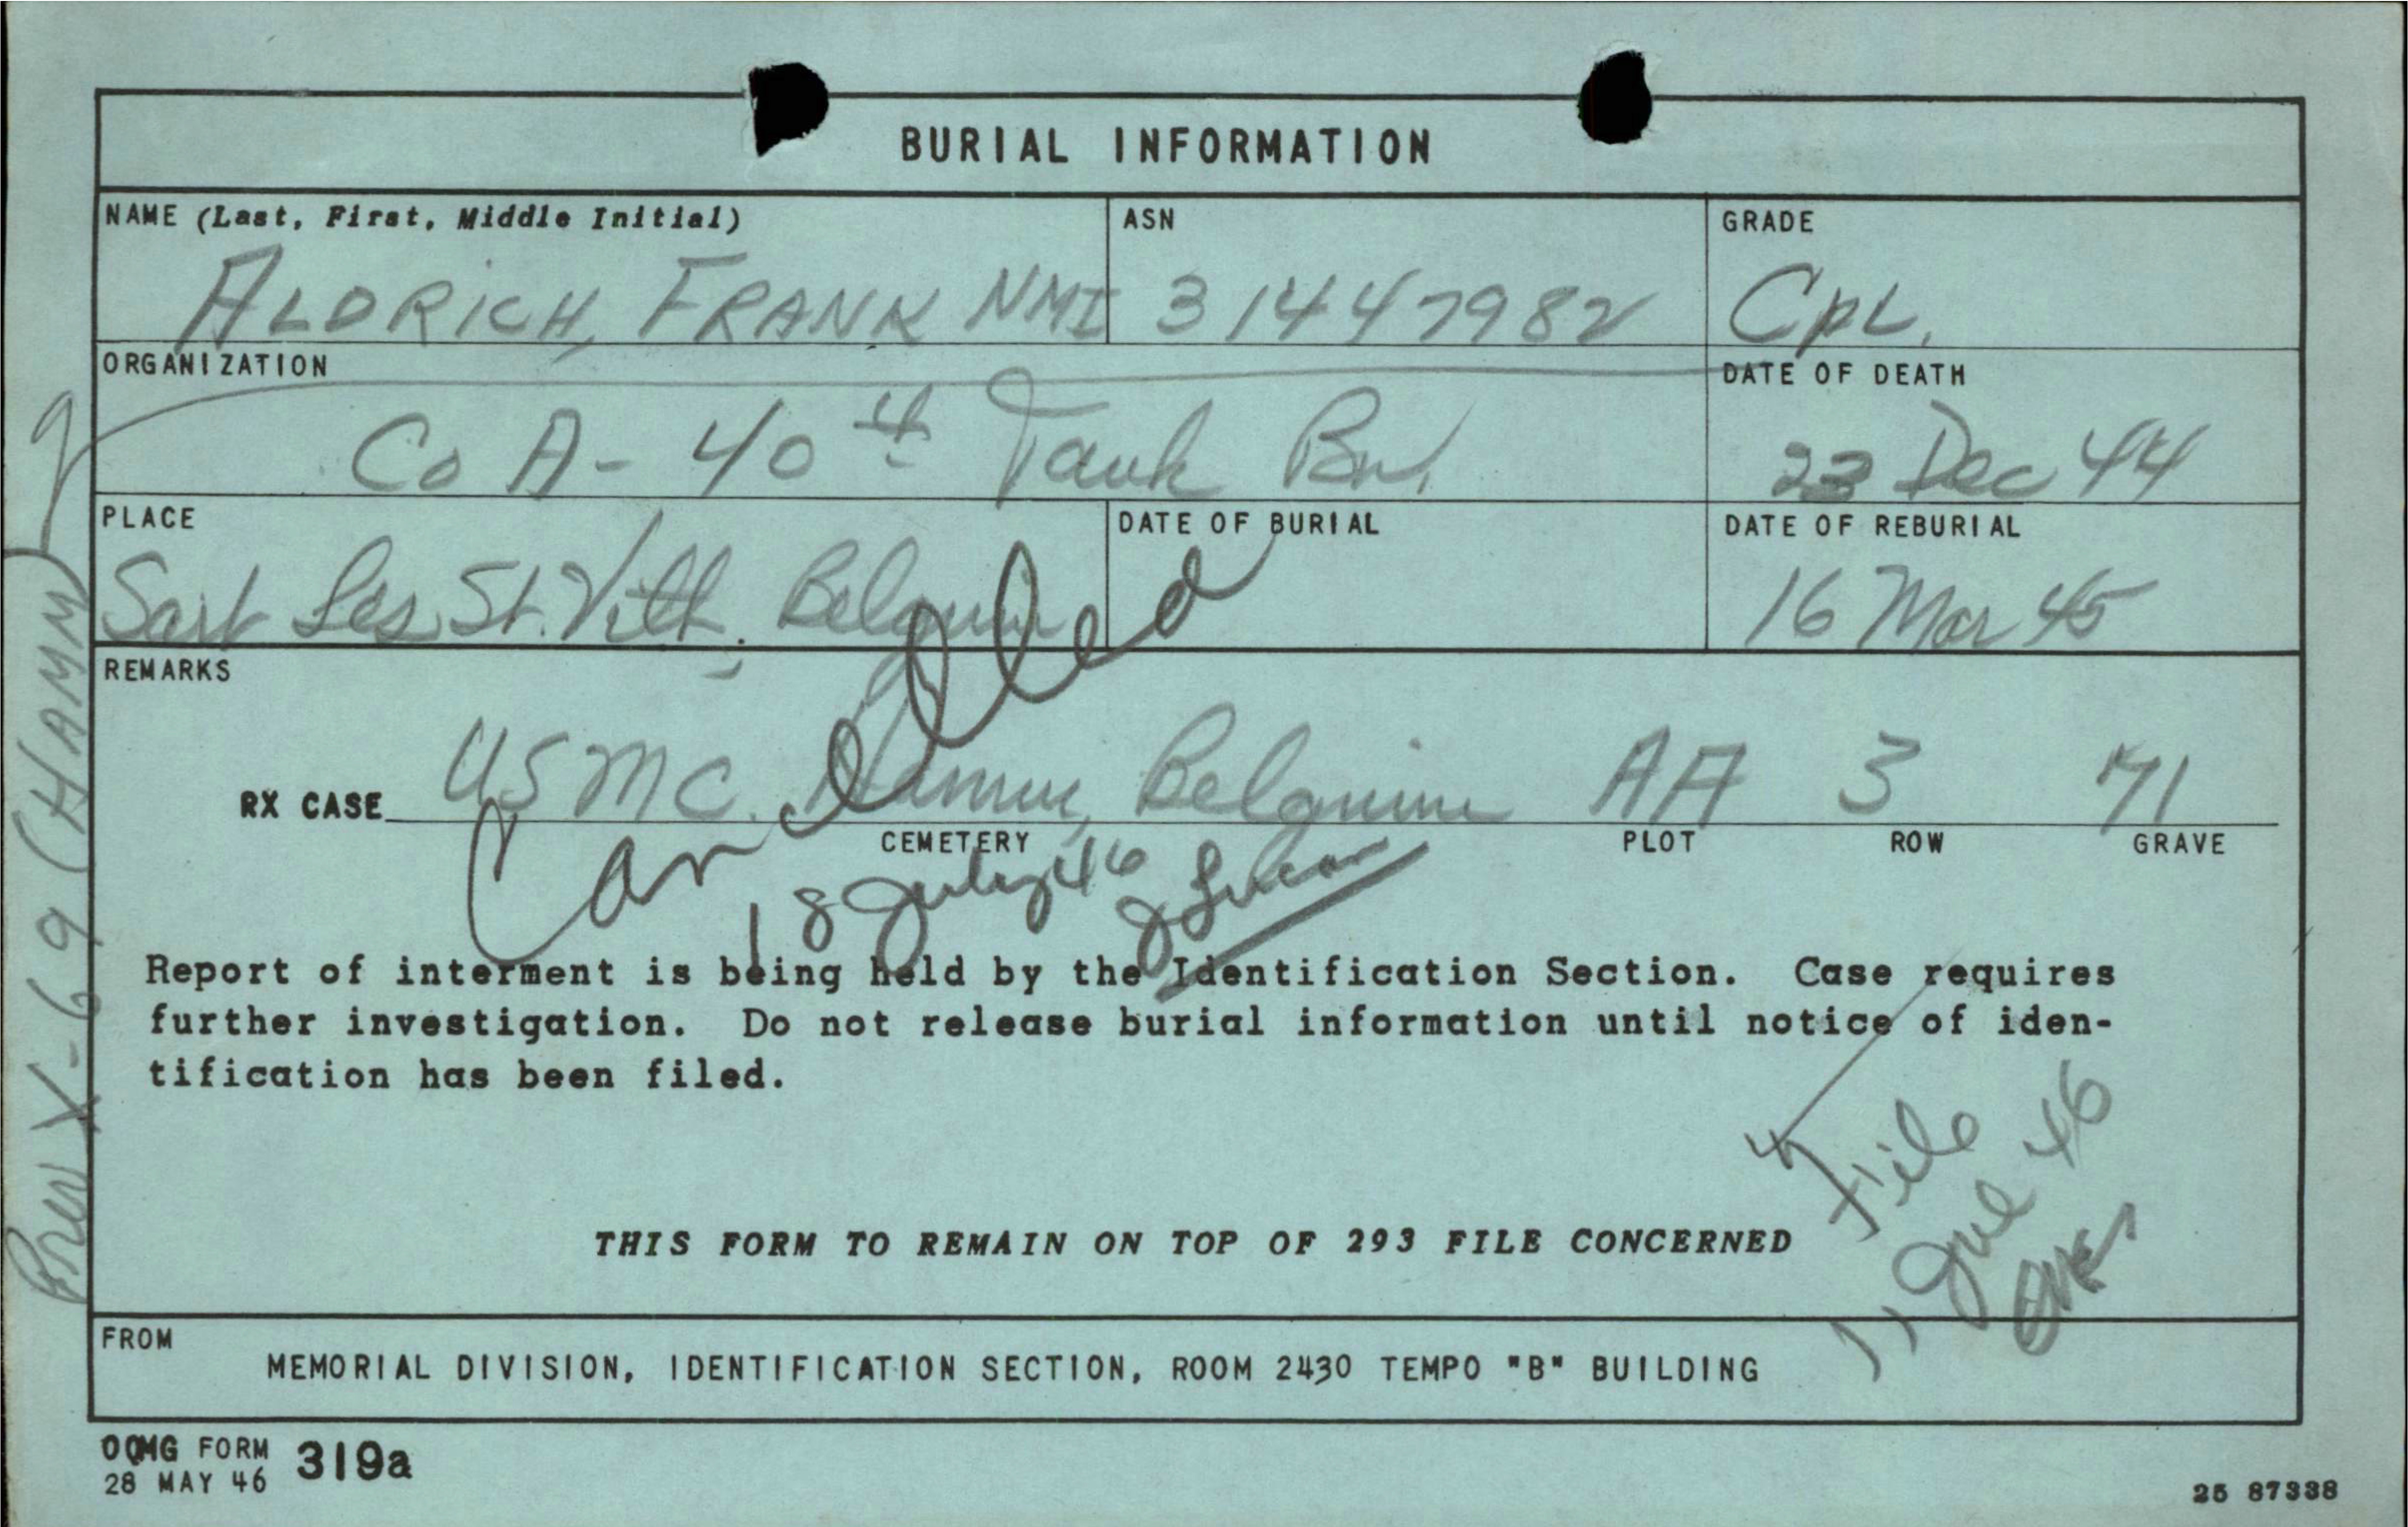 BURIAL INFORMATION
NAME (Last, First, Middle Initial)
ALDRICH, FRANK NMI
ASN
31447982
GRADE
CpL.
ORGANIZATION
Co A - 40th Tank Bn.
DATE OF DEATH
23 Dec 44
PLACE
Sart Les St. Vith, Belgium
DATE OF BURIAL
DATE OF REBURIAL
16 Mar 45
REMARKS
Cancelled
RX CASE USMC. Belgium AA 3 71
CEMETERY PLOT ROW GRAVE
18 July 46
Report of interment is being held by the Identification Section. Case requires
further investigation. Do not release burial information until notice of iden-
tification has been filed.
File
Jul 46
THIS FORM TO REMAIN ON TOP OF 293 FILE CONCERNED
FROM
MEMORIAL DIVISION, IDENTIFICATION SECTION, ROOM 2430 TEMPO "B" BUILDING
OQMG FORM 319a
28 MAY 46
25 87338
X-69 (HAMM)